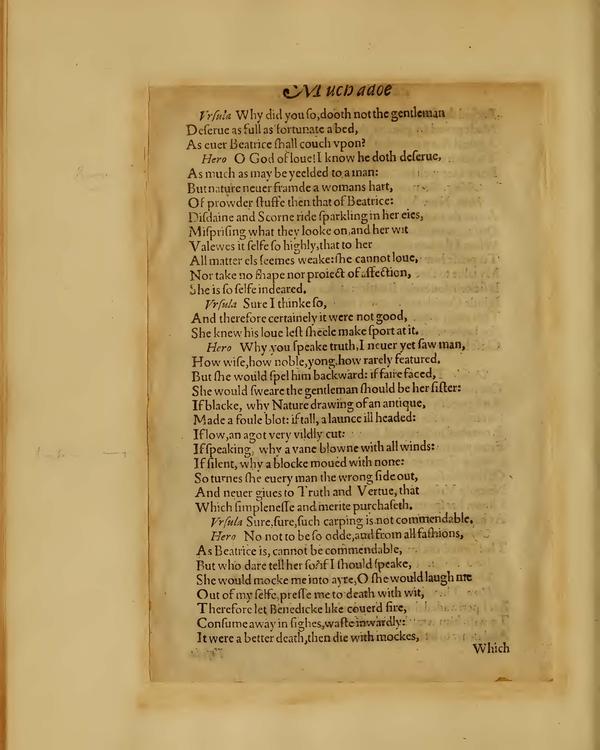 Much adoe
Vrsula Why did you so, dooth not the gentleman
Deserue as full as fortunate a bed,
As euer Beatrice shall couch vpon?
Hero O God of loue! I know he doth deserue,
As much as may be yeelded to a man:
But nature neuer framde a womans hart,
Of prowder stuffe then that of Beatrice:
Disdaine and Scorne ride sparkling in her eies,
Misprising what they looke on, and her wit
Valewes it selfe so highly, that to her
All matter els seemes weake: she cannot loue,
Nor take no shape nor proiect of affection,
She is so selfe indeared.
Vrsula Sure I thinke so,
And therefore certainely it were not good,
She knew his loue lest sheele make sport at it.
Hero Why you speake truth, I neuer yet saw man,
How wise, how noble, yong, how rarely featured.
But she would spel him backward: if faire faced,
She would sweare the gentleman should be her sister:
If blacke, why Nature drawing of an antique,
Made a foule blot: if tall, a launce ill headed:
If low, an agot very vildly cut:
If speaking, why a vane blowne with all winds:
If silent, why a blocke moued with none:
So turnes she euery man the wrong side out,
And neuer giues to Truth and Vertue, that
Which simplenesse and merite purchaseth.
Vrsula Sure, sure, such carping is not commendable.
Hero No not to be so odde, and from all fashions,
As Beatrice is, cannot be commendable,
But who dare tell her so? if I should speake,
She would mocke me into ayre, O she would laugh me
Out of my selfe, presse me to death with wit,
Therefore let Benedicke like couerd fire,
Consume away in sighes, waste inwardly:
It were a better death, then die with mockes,
Which